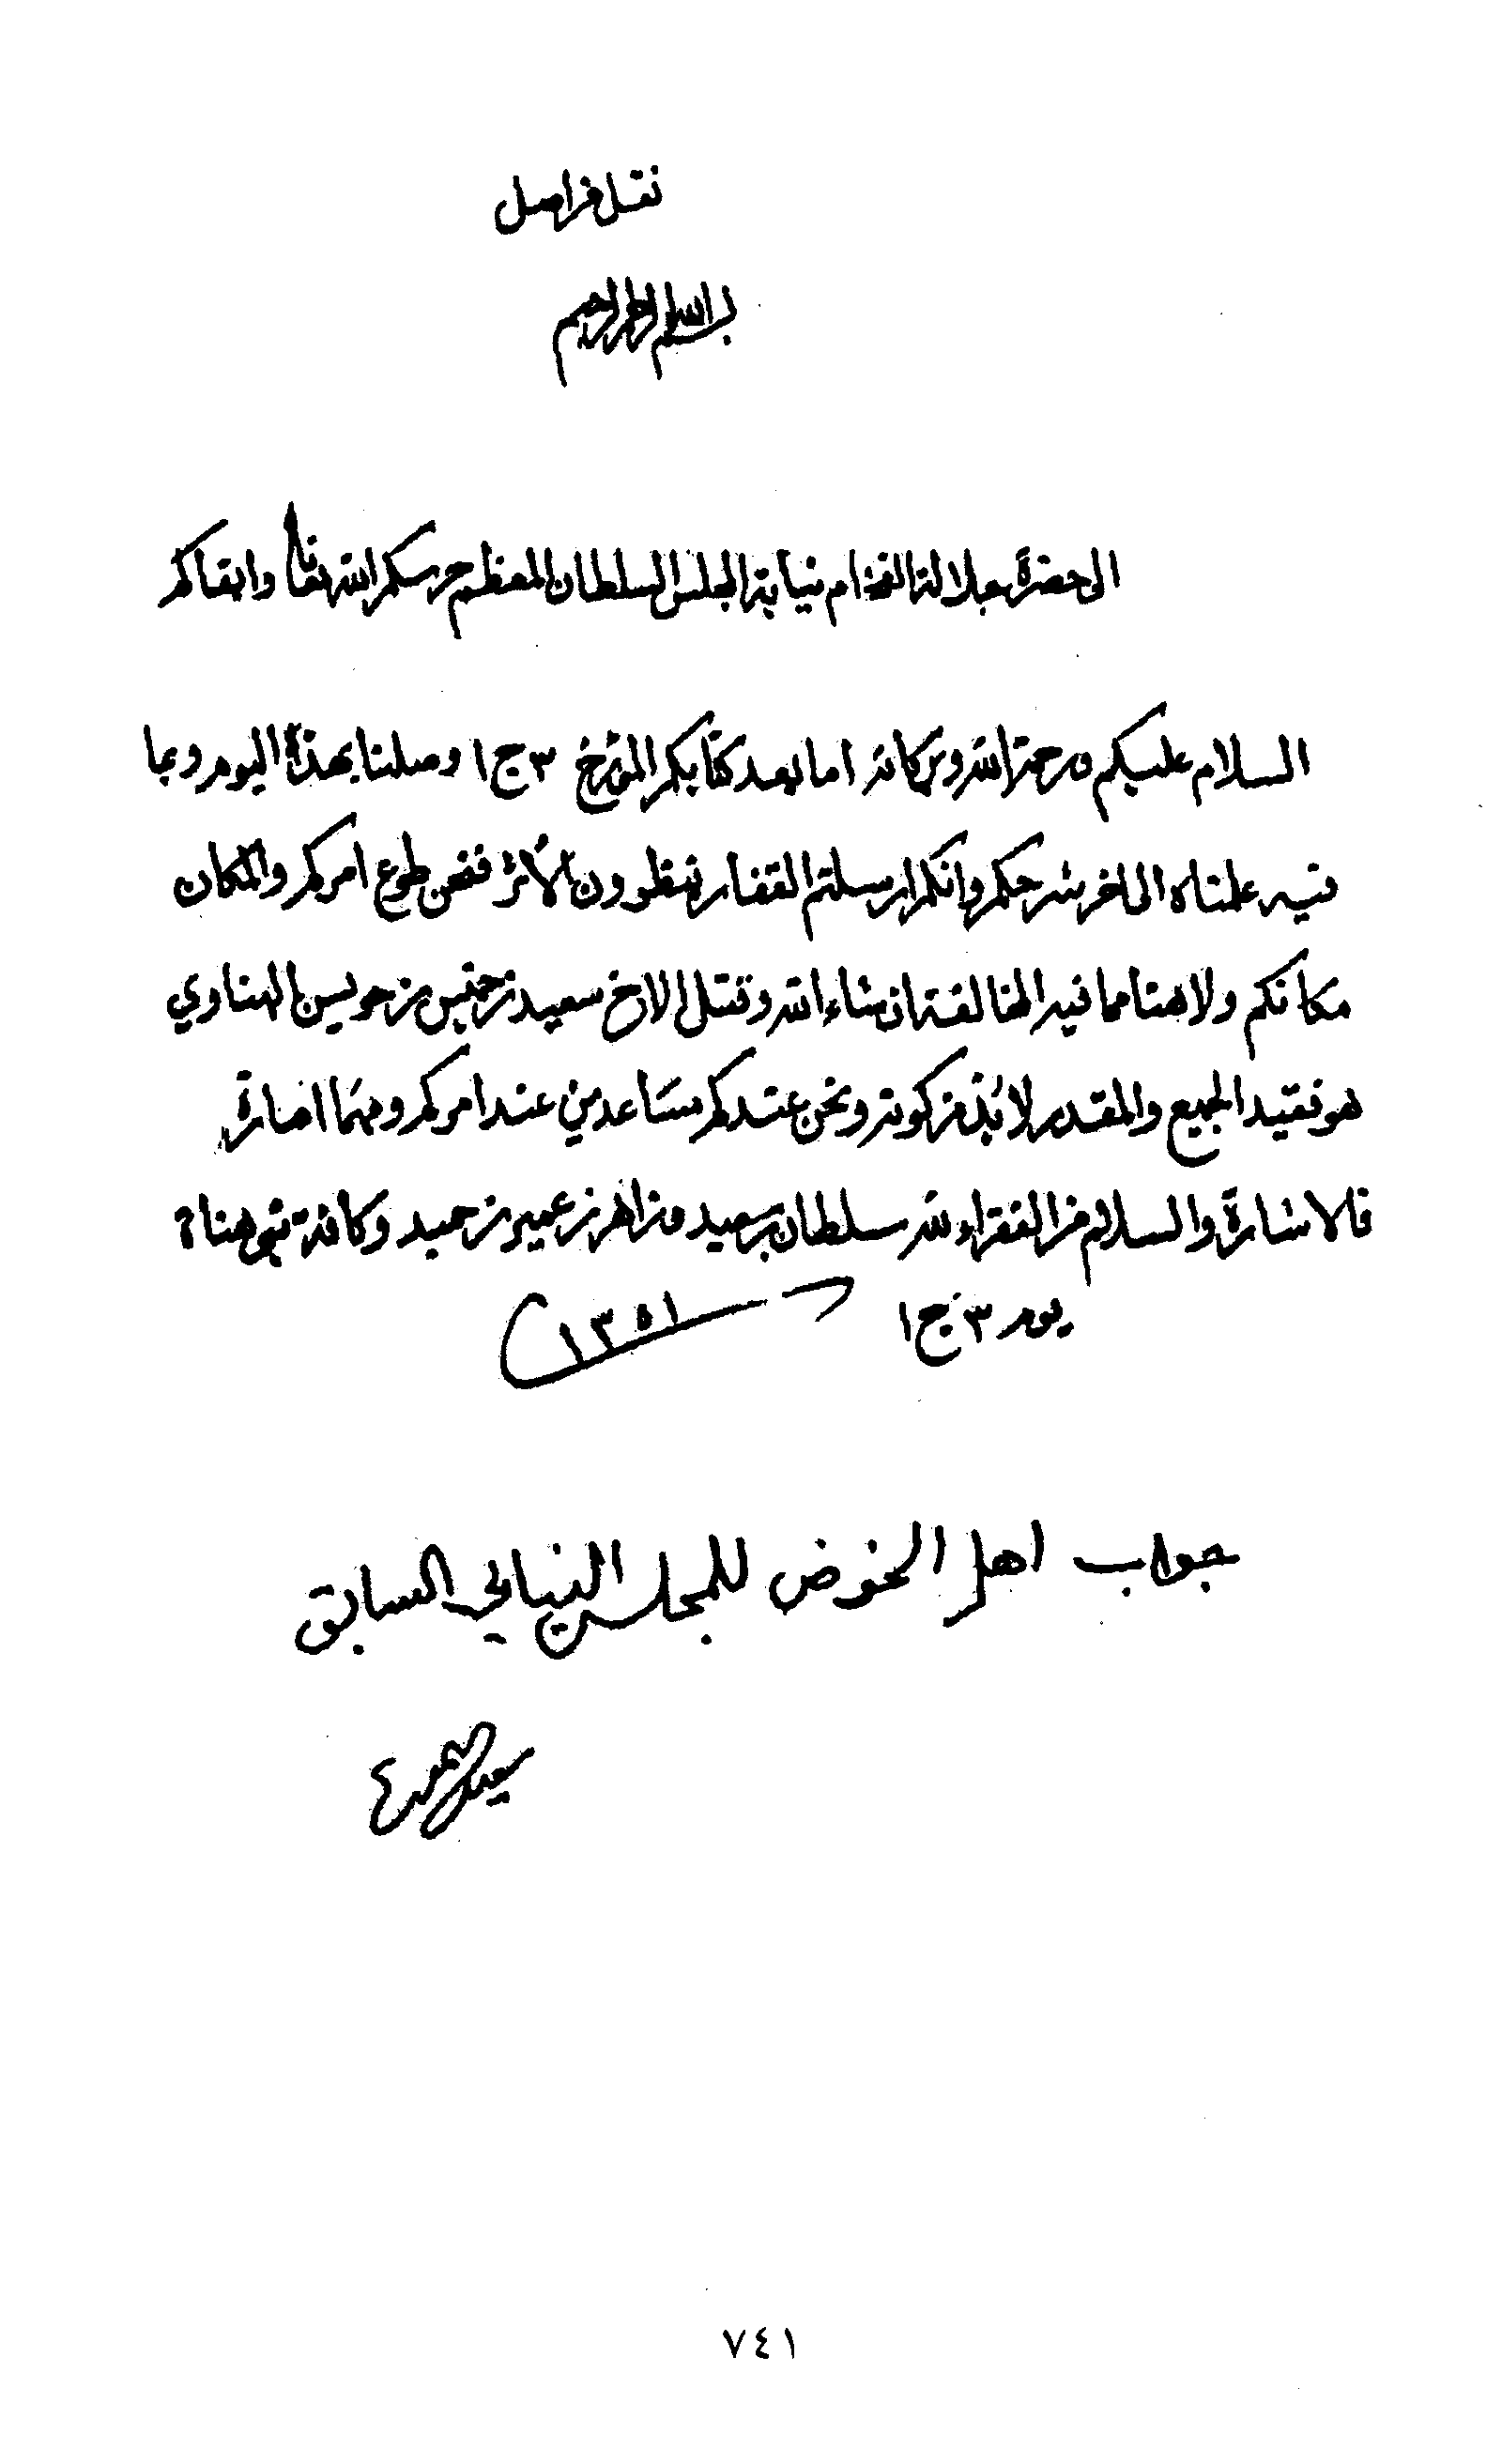 نقل من اصل
بسم الله الرحمن الرحيم
الى حضرة جلالة الفخام نيابة المجلس السلطان المعظم حرسكم الله تعالى وابقاكم
السلام عليكم ورحمة الله وبركاته اما بعد كتابكم المؤرخ ٣ ج ١ وصلنا بهذا اليوم وبما
فيه علمناه الى اخر شرحكم وانكم ارسلتم القفار ينظرون الأثر فنحن طوع امركم والمكان
مكانكم ولا هنا مما فيه المخالفة ان شاء الله وقتل الاخ سعيد بن خميس بن حويسن الهناوي
هو فقيد الجميع والمقدر لا بُدّ من كونه ونحن عندكم مساعدين عند امركم ومهما اصارة
فالاشارة والسلام من الفقراء لله سلطان بن سعيد مزاهر بن عمير بن حميد وكافة بني هناة
يوم ٣ ج ١ ١٣٥١
جواب اهل الخوض للمجلس النيابي السابق
٧٤١